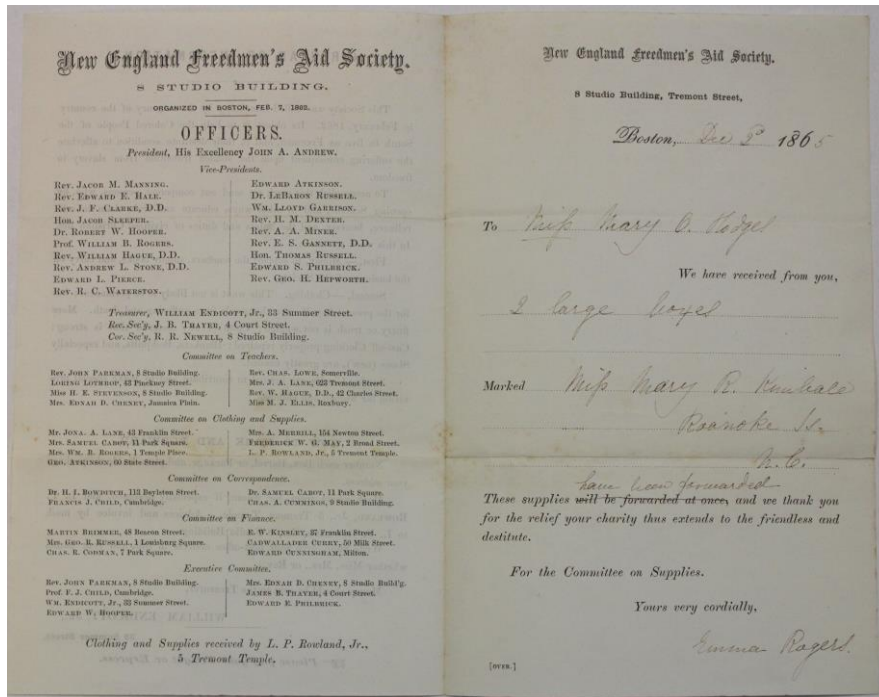 New England Freedmen's Aid Society.
8 STUDIO BUILDING.
ORGANIZED IN BOSTON, FEB. 7, 1862.
OFFICERS.
President, His Excellency JOHN A. ANDREW.
Vice-Presidents.
Rev. JACOB M. MANNING.
Rev. EDWARD E. HALE.
Rev. J. F. CLARKE, D.D.
Hon. JACOB SLEEPER.
Dr. ROBERT W. HOOPER.
Prof. WILLIAM B. ROGERS.
Rev. WILLIAM HAGUE, D.D.
Rev. ANDREW L. STONE, D.D.
EDWARD L. PIERCE.
Rev. R. C. WATERSTON.
EDWARD ATKINSON.
Dr. LEBARON RUSSELL.
WM. LLOYD GARRISON.
Rev. H. M. DEXTER.
Rev. A. A. MINER.
Rev. E. S. GANNETT, D.D.
Hon. THOMAS RUSSELL.
EDWARD S. PHILBRICK.
Rev. GEO. H. HEPWORTH.
Treasurer, WILLIAM ENDICOTT, Jr., 33 Summer Street.
Rec. Sec'y, J. B. THAYER, 4 Court Street.
Cor. Sec'y, R. R. NEWELL, 8 Studio Building.
Committee on Teachers.
Rev. JOHN PARKMAN, 8 Studio Building.
LORING LOTHROP, 43 Pinckney Street.
Miss H. E. STEVENSON, 8 Studio Building.
Mrs. EDNAH D. CHENEY, Jamaica Plain.
Rev. CHAS. LOWE, Somerville.
Mrs. J. A. LANE, 623 Tremont Street.
Rev. W. HAGUE, D.D., 42 Charles Street.
Miss M. J. ELLIS, Roxbury.
Committee on Clothing and Supplies.
Mr. JONA. A. LANE, 43 Franklin Street.
Mrs. SAMUEL CABOT, 11 Park Square.
Mrs. WM. B. ROGERS, 1 Temple Place.
GEO. ATKINSON, 60 State Street.
Mrs. A. MERRILL, 154 Newton Street.
FREDERICK W. G. MAY, 2 Broad Street.
L. P. ROWLAND, Jr., 5 Tremont Temple.
Committee on Correspondence.
Dr. H. I. BOWDITCH, 113 Boylston Street.
FRANCIS J. CHILD, Cambridge.
Dr. SAMUEL CABOT, 11 Park Square.
CHAS. A. CUMMINGS, 9 Studio Building.
Committee on Finance.
MARTIN BRIMMER, 48 Beacon Street.
Mrs. GEO. R. RUSSELL, 1 Louisburg Square.
CHAS. R. CODMAN, 7 Park Square.
E. W. KINSLEY, 37 Franklin Street.
CADWALLADER CURRY, 50 Milk Street.
EDWARD CUNNINGHAM, Milton.
Executive Committee.
Rev. JOHN PARKMAN, 8 Studio Building.
Prof. F. J. CHILD, Cambridge.
WM. ENDICOTT, Jr., 33 Summer Street.
EDWARD W. HOOPER.
Mrs. EDNAH D. CHENEY, 8 Studio Build'g.
JAMES B. THAYER, 4 Court Street.
EDWARD E. PHILBRICK.
Clothing and Supplies received by L. P. Rowland, Jr.,
5 Tremont Temple.
New England Freedmen's Aid Society.
8 Studio Building, Tremont Street,
Boston, Dec 1865
To Miss Mary C. Hodges
We have received from you,
2 large boxes
Marked Miss Mary R. Kimball
Roanoke Is.
N.C.
have been forwarded
These supplies will be forwarded at once, and we thank you
for the relief your charity thus extends to the friendless and
destitute.
For the Committee on Supplies.
Yours very cordially,
Emma Rogers.
[OVER.]